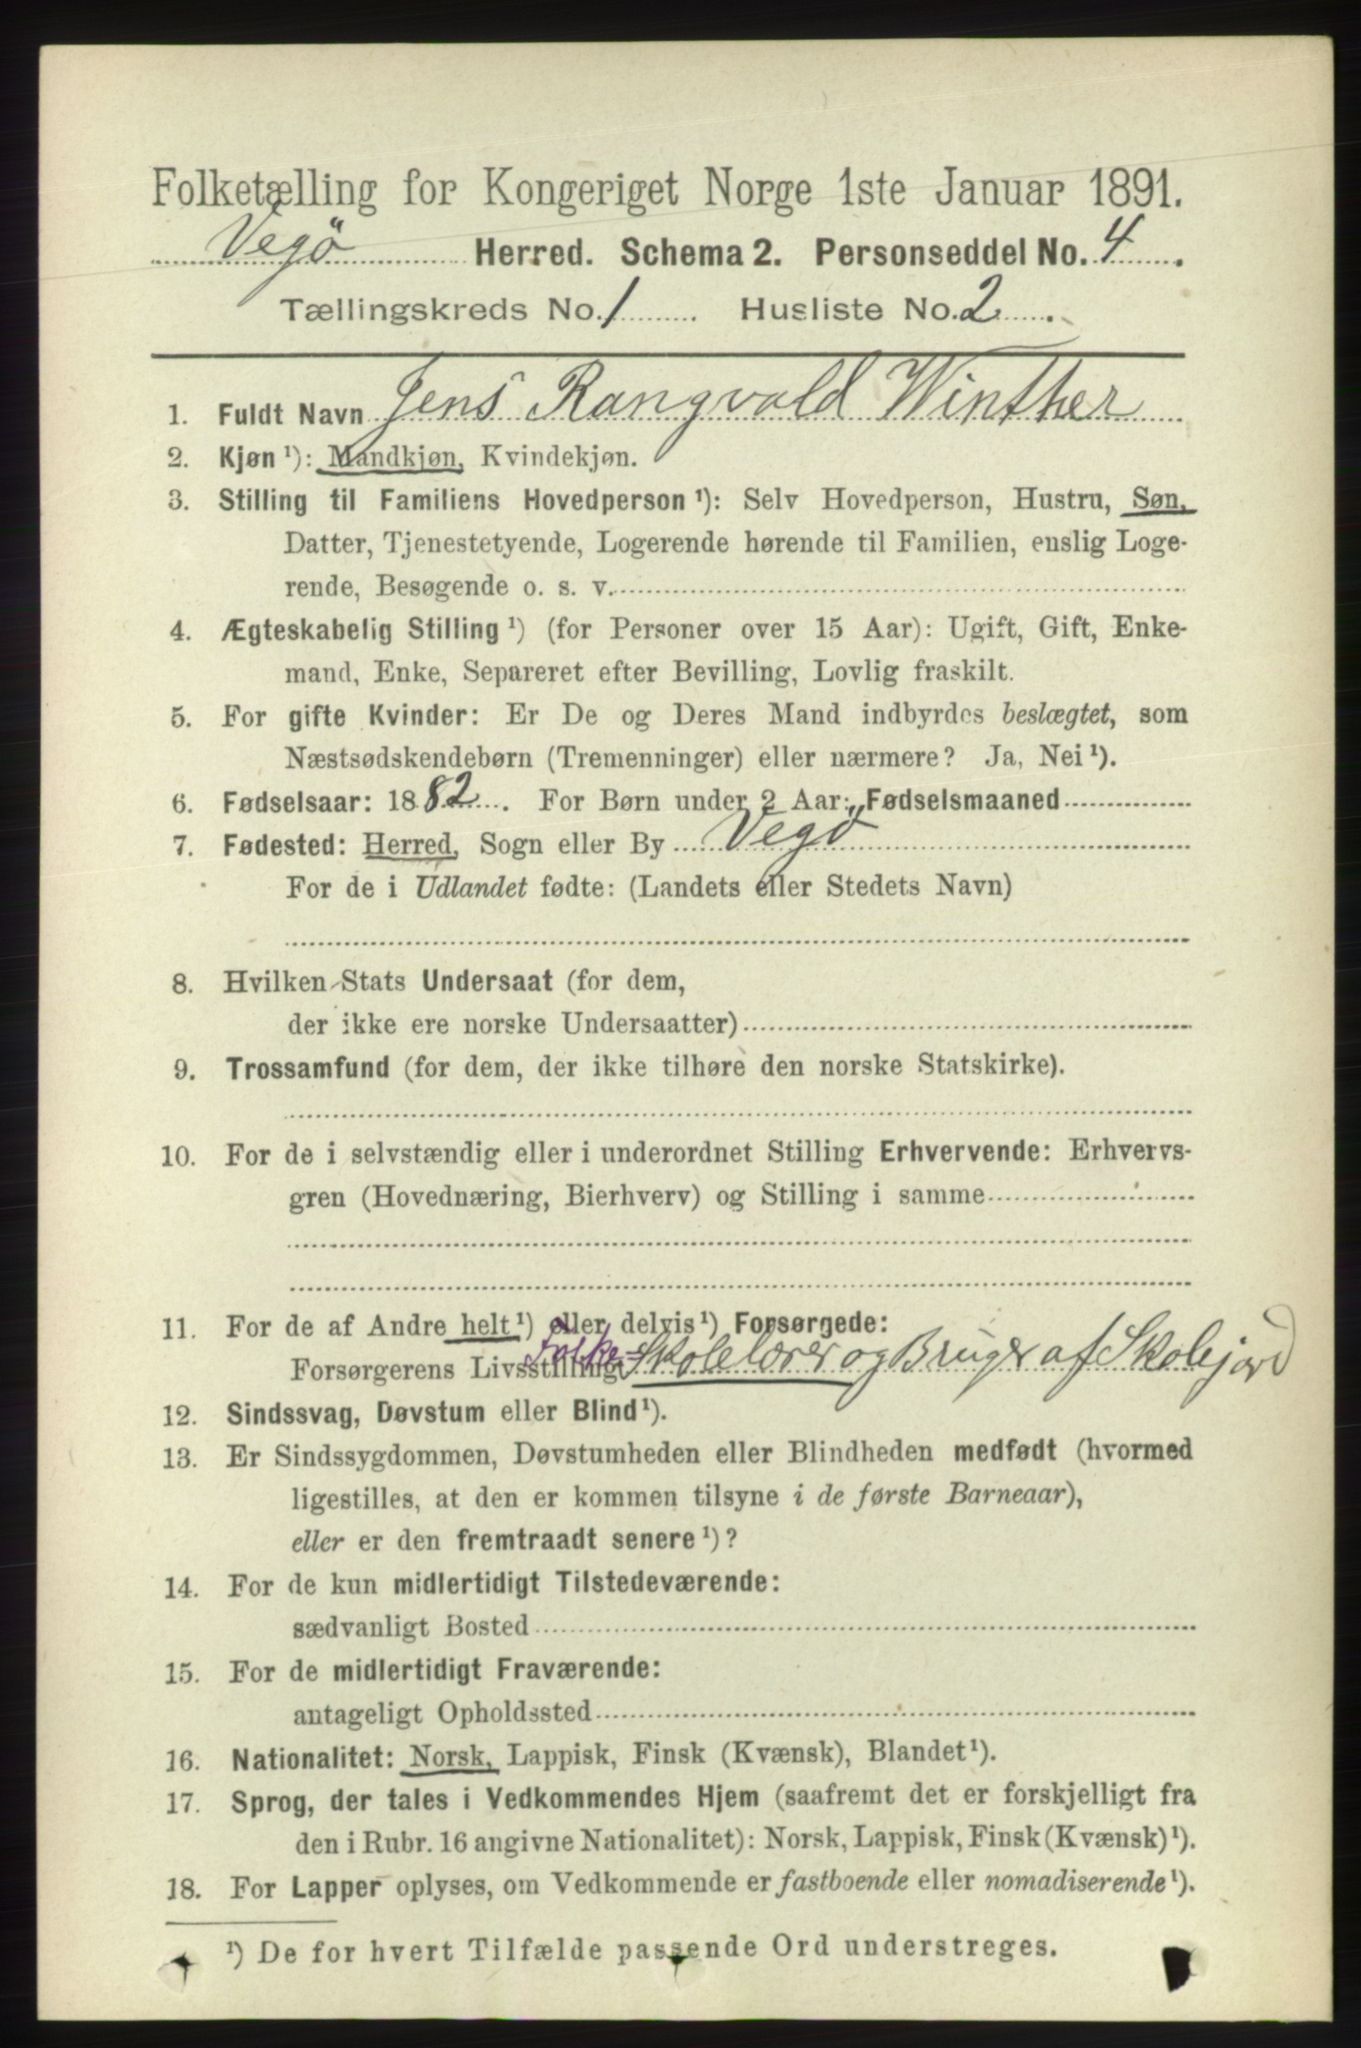 Folketælling for Kongeriget Norge 1ste Januar 1891.
Vegö Herred. Schema 2. Personseddel No. 4.
Tællingskreds No. 1. Husliste No. 2.
1. Fuldt Navn Jens Rangvald Winther
2. Kjøn ¹): Mandkjøn, Kvindekjøn.
3. Stilling til Familiens Hovedperson ¹): Selv Hovedperson, Hustru, Søn,
Datter, Tjenestetyende, Logerende hørende til Familien, enslig Loge-
rende, Besøgende o. s. v.
4. Ægteskabelig Stilling ¹) (for Personer over 15 Aar): Ugift, Gift, Enke-
mand, Enke, Separeret efter Bevilling, Lovlig fraskilt.
5. For gifte Kvinder: Er De og Deres Mand indbyrdes beslægtet, som
Næstsødskendebørn (Tremenninger) eller nærmere? Ja, Nei ¹).
6. Fødselsaar: 1882. For Børn under 2 Aar: Fødselsmaaned
7. Fødested: Herred, Sogn eller By Vegö
For de i Udlandet fødte: (Landets eller Stedets Navn)
8. Hvilken Stats Undersaat (for dem,
der ikke ere norske Undersaatter)
9. Trossamfund (for dem, der ikke tilhøre den norske Statskirke).
10. For de i selvstændig eller i underordnet Stilling Erhvervende: Erhvervs-
gren (Hovednæring, Bierhverv) og Stilling i samme
11. For de af Andre helt ¹) eller delvis ¹) Forsørgede:
Forsørgerens Livsstilling: Folke=Skolelærer og Bruger af Skolejord
12. Sindssvag, Døvstum eller Blind ¹).
13. Er Sindssygdommen, Døvstumheden eller Blindheden medfødt (hvormed
ligestilles, at den er kommen tilsyne i de første Barneaar),
eller er den fremtraadt senere ¹)?
14. For de kun midlertidigt Tilstedeværende:
sædvanligt Bosted
15. For de midlertidigt Fraværende:
antageligt Opholdssted
16. Nationalitet: Norsk, Lappisk, Finsk (Kvænsk), Blandet ¹).
17. Sprog, der tales i Vedkommendes Hjem (saafremt det er forskjelligt fra
den i Rubr. 16 angivne Nationalitet): Norsk, Lappisk, Finsk (Kvænsk) ¹).
18. For Lapper oplyses, om Vedkommende er fastboende eller nomadiserende ¹).
¹) De for hvert Tilfælde passende Ord understreges.